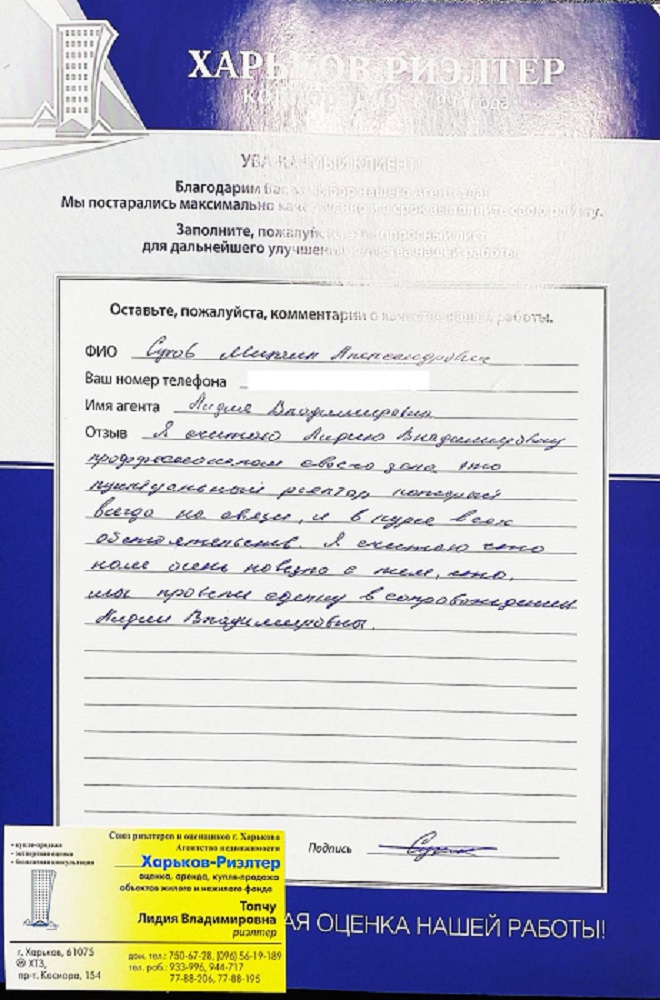 ХАРЬКОВ РИЭЛТЕР
года
УВАЖАЕМЫЙ КЛИЕНТ
Благодарим Вас за выбор нашего Агентства.
Мы постарались максимально качественно и в срок выполнить свою работу.
Заполните, пожалуйста, этот опросный лист
для дальнейшего улучшения качества нашей работы.
Оставьте, пожалуйста, комментарии о качестве нашей работы.
ФИО Сухов Михаил Александрович
Ваш номер телефона
Имя агента Лидия Владимировна
Отзыв Я считаю Лидию Владимировну
профффесионалом своего дела, это
пунктуальный риэлтор который
всегда на связи, и в курсе всех
обстоятельств. Я считаю что
нам очень повезло с тем, что,
мы провели сделку в сопровождении
Лидии Владимировны.
Подпись
АЯ ОЦЕНКА НАШЕЙ РАБОТЫ!
Союз риэлтеров и оценщиков г. Харькова
Агентство недвижимости
• купля-продажа
• экспертная оценка
• бесплатная консультация
Харьков-Риэлтер
оценка, аренда, купля-продажа
объектов жилого и нежилого фонда
Топчу
Лидия Владимировна
риэлтер
г. Харьков, 61075
М ХТЗ,
пр-т. Косиора, 154
дом. тел.: 750-67-28, (096) 56-19-189
тел. раб.: 933-996, 944-717
77-88-206, 77-88-195